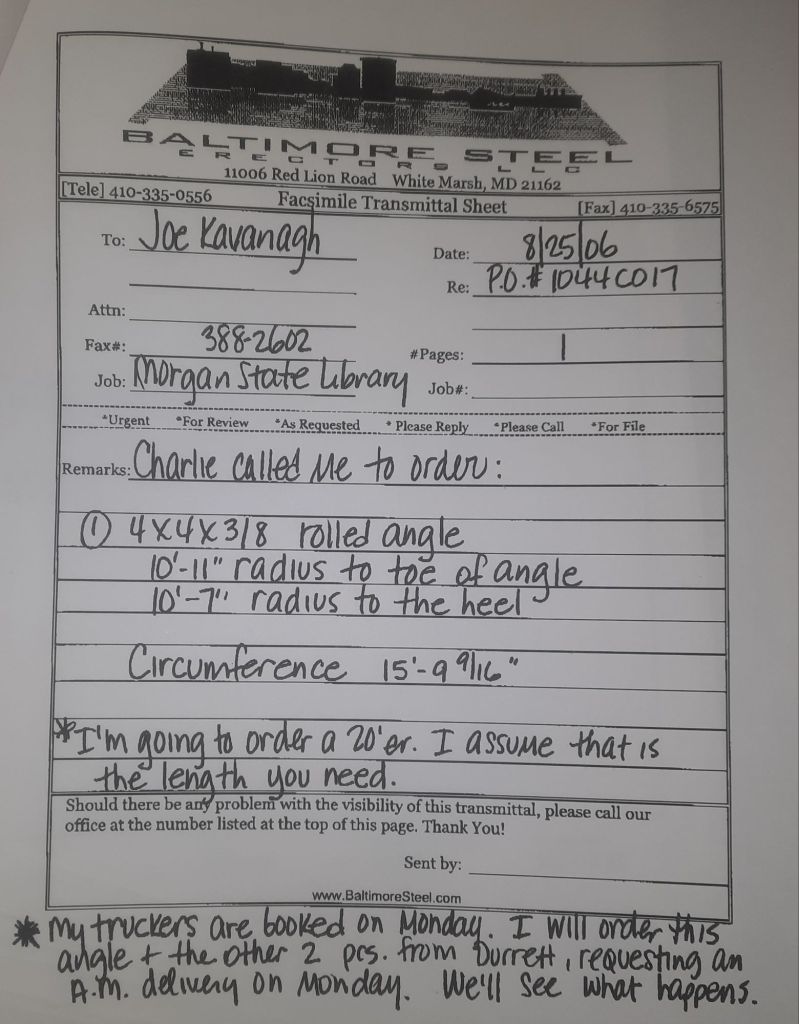 BALTIMORE STEEL
ERECTORS LLC
11006 Red Lion Road White Marsh, MD 21162
[Tele] 410-335-0556 Facsimile Transmittal Sheet [Fax] 410-335-6575
To: Joe Kavanagh
Date: 8/25/06
Re: P.O.# 1044C017
Attn:
Fax#: 388-2602
#Pages: 1
Job: Morgan State Library Job#:
*Urgent *For Review *As Requested * Please Reply *Please Call *For File
Remarks: Charlie called me to order:
① 4x4x3/8 rolled angle
10'-11" radius to toe of angle
10'-7" radius to the heel
Circumference 15'-9 9/16"
*I'm going to order a 20'er. I assume that is
the length you need.
Should there be any problem with the visibility of this transmittal, please call our
office at the number listed at the top of this page. Thank You!
Sent by:
www.BaltimoreSteel.com
* My truckers are booked on Monday. I will order this
angle + the other 2 pcs. from Durrett, requesting an
A.M. delivery on Monday. We'll see what happens.